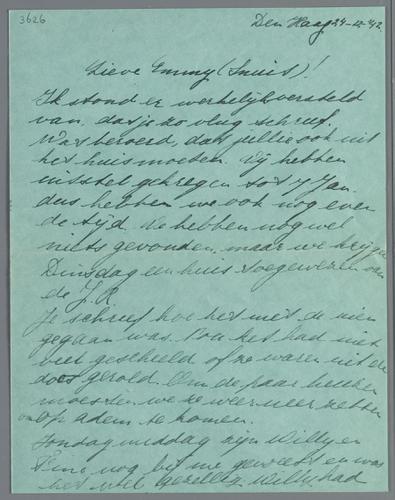 3626
Den Haag 24-12-'42.
Lieve Emmy (Snuit)!
Ik stond er werkelijk versteld
van, dat je zo vlug schreef.
Was beroerd, dat jullie ook uit
het huis moeten. Wij hebben
uitstel gekregen tot 7 Jan.
dus hebben we ook nog even
de tijd. We hebben nog wel
niets gevonden, maar we krijgen
Dinsdag een huis toegewezen van
de J.R.
Je schreef hoe het met de
gegaan was. Nou het had niet
veel gescheeld of ze waren uit de
doos gerold. Om de paar
moesten we ze weer neer zetten
om op adem te komen.
Zondagmiddag zijn Willy en
nog bij me geweest en was
het wel gezellig. Willy had